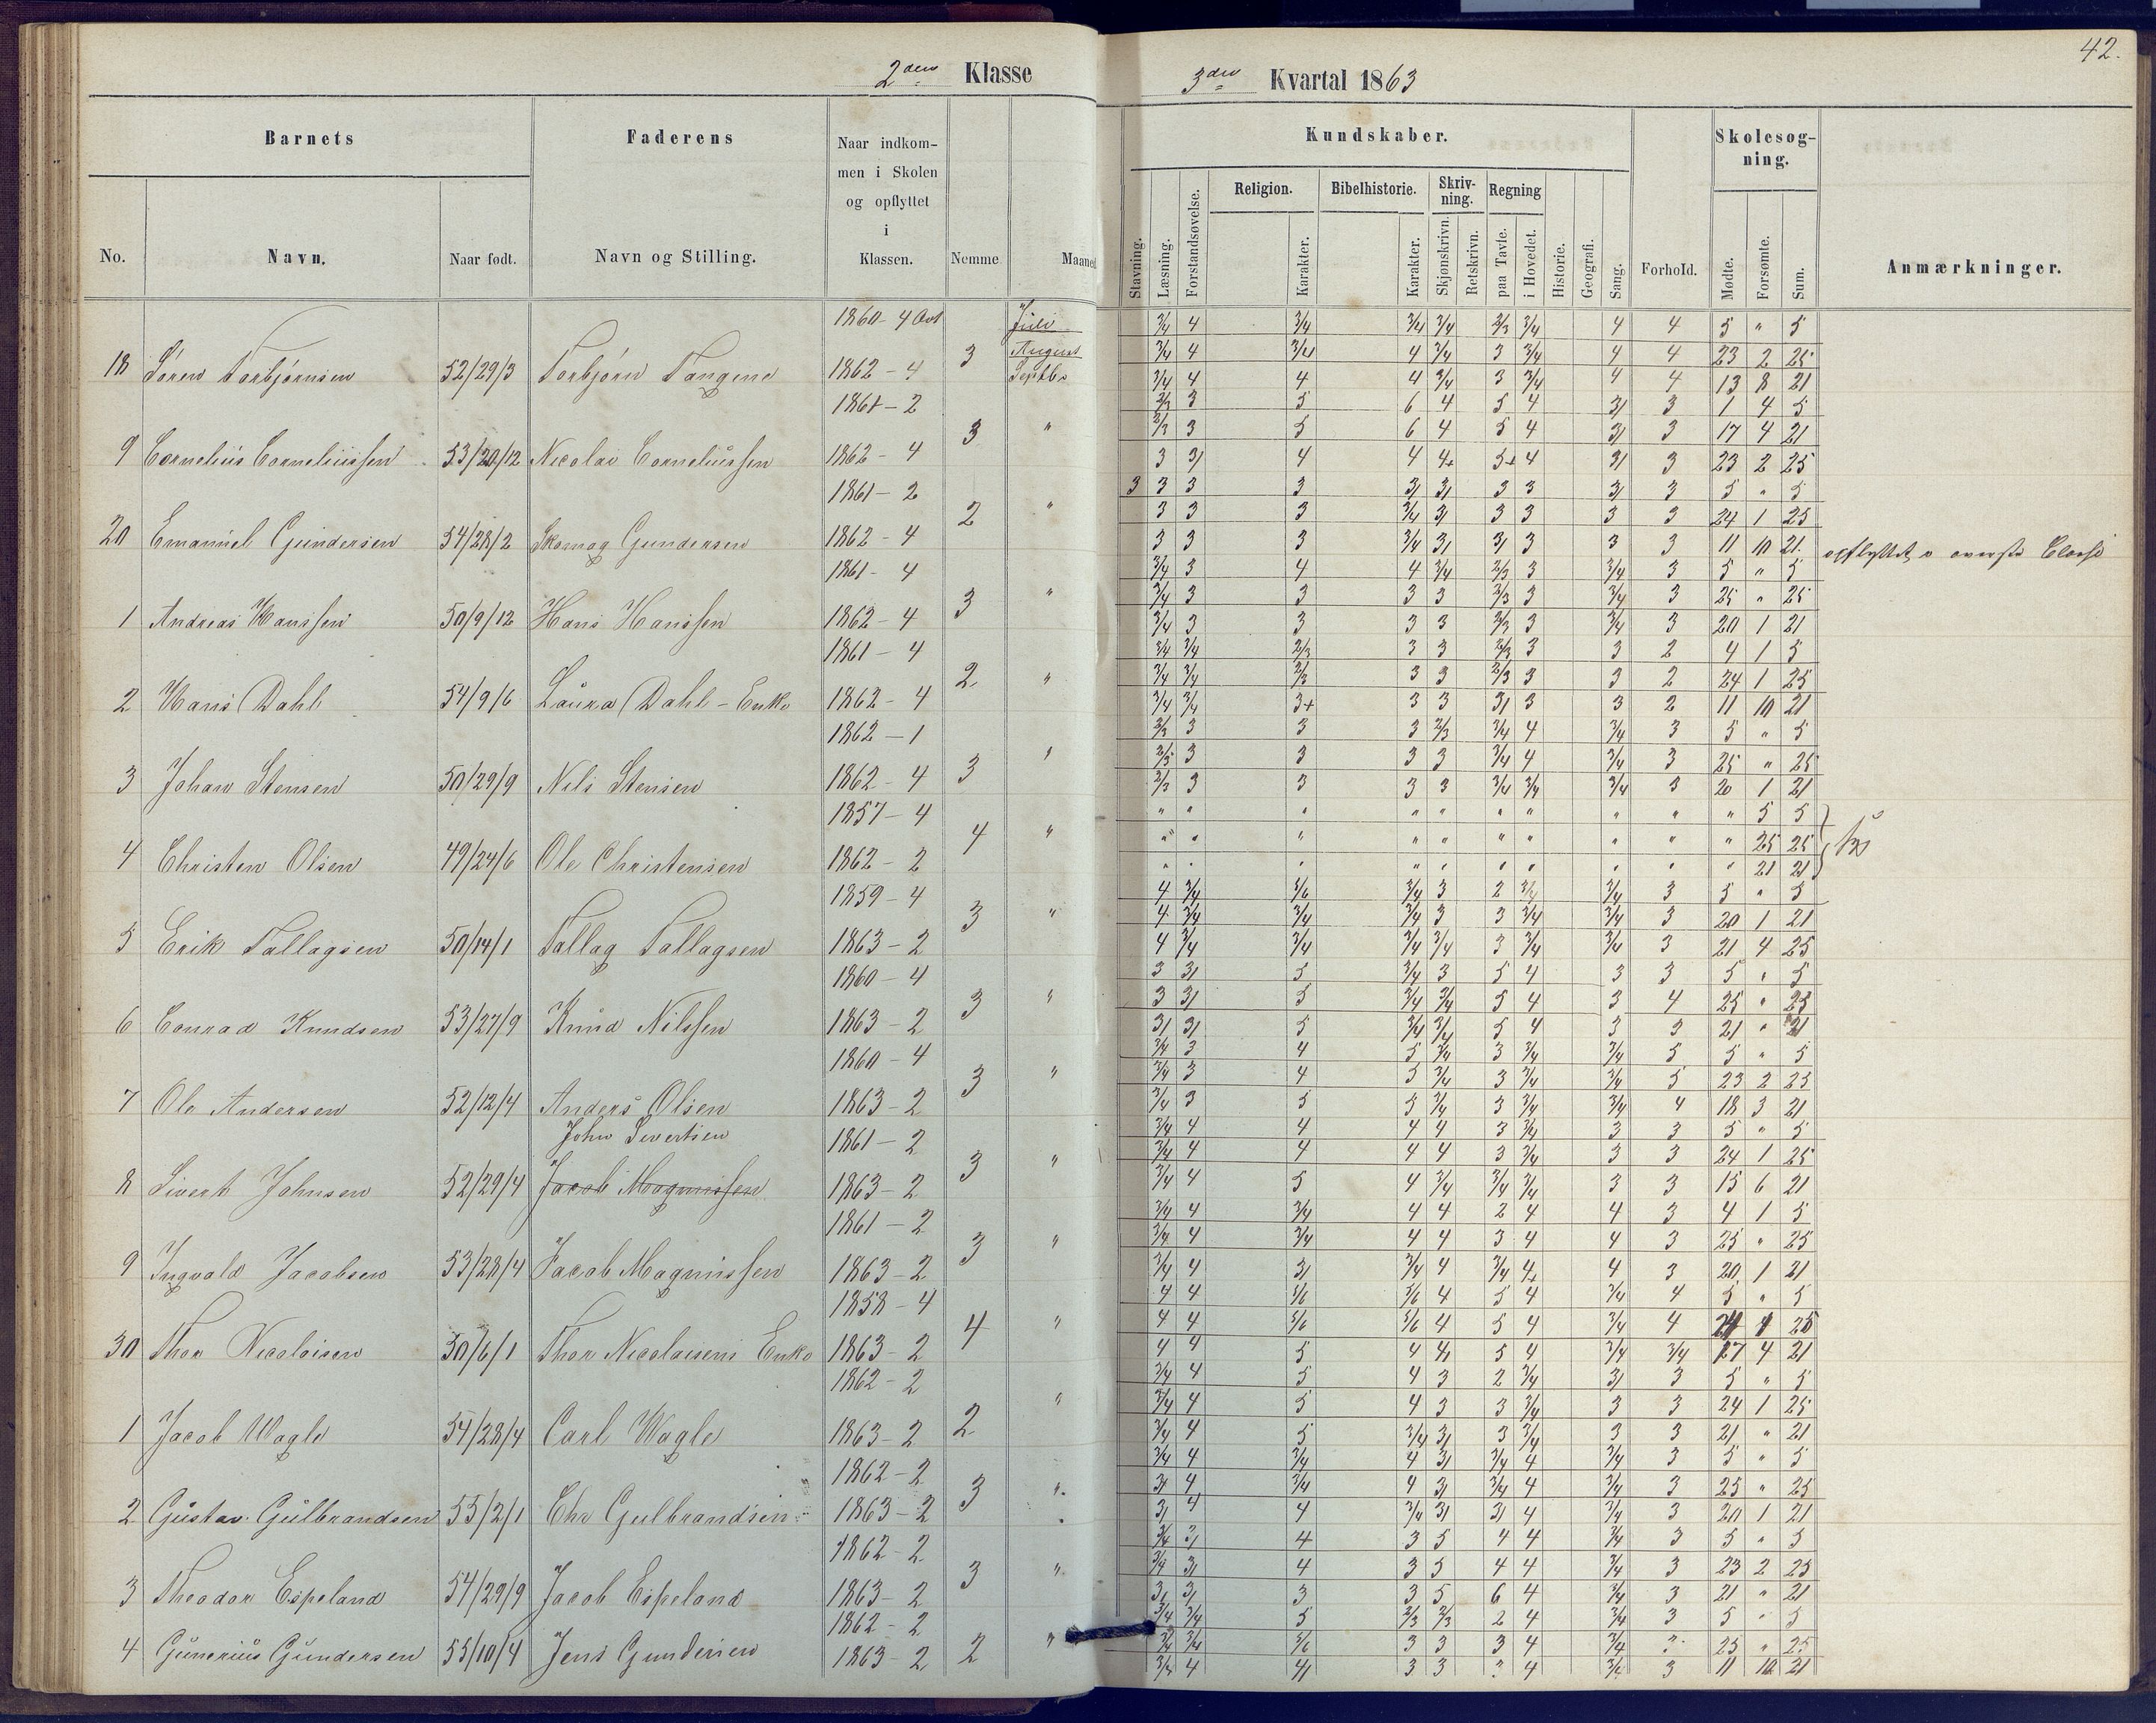 42.
2den Klasse
3die Kvartal 1863
Barnets
Faderens
Naar indkommen i Skolen og opflyttet i Klassen.
Kundskaber.
Skolesøgning.
No.
Navn.
Naar født.
Navn og Stilling.
Nemme
Maaned
Stavning.
Læsning.
Forstandsøvelse.
Religion.
Karakter.
Bibelhistorie.
Karakter.
Skrivning.
Skjønskrivn.
Retskrivn.
Regning
paa Tavle.
i Hovedet.
Historie.
Geografi.
Sang.
Forhold.
Mødte.
Forsømte.
Sum.
Anmærkninger.
1860 - 4 Juli 3/4 4 3/4 3/4 3/4 2/3 3/4 4 4 5 " 5
August 3/4 4 3/4 4 3/4 3 3/4 4 4 23 2 25
18 Søren Torbjørnsen 52/29/3 Torbjørn Tangene 1862 - 4 3 Septbr 3/4 4 4 4 3/4 3 3/4 4 4 13 8 21
1861 - 2 2/3 3 5 6 4 5 4 3/ 3 1 4 5
3 " 2/3 3 5 6 4 5 4 3/ 3 17 4 21
9 Cornelius Corneliussen 53/20/12 Nicolai Corneliussen 1862 - 4 3 3/ 4 4 4+ 5+ 4 3/ 3 23 2 25
1861 - 2 3 3 3 3 3/ 3/ 3 3 3/ 3 5 " 5
2 " 3 3 3 3/4 3/ 3 3 3 3 24 1 25
20 Emanuel Gundersen 54/28/2 Skomag Gundersen 1862 - 4 3 3 3 3/4 3/ 3/ 3 3 3 11 10 21. opflyttet i øverste Classe
1861 - 4 3/4 3 4 4 3/4 2/3 3 3/4 3 5 " 5
3 " 3/4 3 3 3 3 2/3 3 3/4 3 25 " 25
1 Andreas Hanssen 50/9/12 Hans Hanssen 1862 - 4 3/4 3 3 3 3 2/3 3 3/4 3 20 1 21
1861 - 4 3/4 3/4 2/3 3 3 2/3 3 3 2 4 1 5
2 " 3/4 3/4 2/3 3 3 2/3 3 3 2 24 1 25
2 Hans Dahl 54/9/6 Laura Dahl - Enke 1862 - 4 3/4 3/4 3+ 3 3 3/ 3 3 2 11 10 21
1862 - 1 2/3 3 3 3 2/3 3/4 4 3/4 3 5 " 5
3 " 2/3 3 3 3 3 3/4 4 3/4 3 25 " 25
3 Johan Stensen 50/29/9 Nils Stensen 1862 - 4 2/3 3 3 3 3 3/4 3/4 3/4 3 20 1 21
1857 - 4 " " " " " " " " " " 5 5
4 " " " " " " " " " " " 25 25
4 Christen Olsen 49/24/6 Ole Christensen 1862 - 2 " " " " " " " " " " 21 21
1859 - 4 4 3/4 5/6 3/4 3 2 3/4 3/4 3 5 " 5
3 " 4 3/4 3/4 3/4 3 3 3/4 3/4 3 20 1 21
5 Erik Tallagsen 50/14/1 Tallag Tallagsen 1863 - 2 4 3/4 3/4 3/4 3/4 3 3/4 3/4 3 21 4 25
1860 - 4 3 3/ 5 3/4 3 5 4 3 3 5 " 5
3 " 3 3/ 5 3/4 3/4 5 4 3 4 25 " 25
6 Conrad Knudsen 53/27/9 Knud Nilssen 1863 - 2 3/ 3/ 5 3/4 3/4 5 4 3 3 21 " 21
1860 - 4 3/4 3 4 5 3/4 3 3/4 3/4 5 5 " 5
3 " 3/4 3 4 5 3/4 3 3/4 3/4 5 23 2 25
7 Ole Andersen 52/12/4 Anders Olsen 1863 - 2 3/4 3 5 5 3/4 3 3/4 3/4 4 18 3 21
John Sivertsen 1861 - 2 3/4 4 4 4 4 3 3/4 3 3 5 " 5
3 " 3/4 4 4 4 4 3 3/4 3 3 24 1 25
8 Sivert Johnsen 52/29/4 Jacob Magnussen 1863 - 2 3/4 4 5 4 3/4 3/4 3/4 3 3 15 6 21
1861 - 2 3/4 4 3/4 4 4 2 4 4 3 4 1 5
3 " 3/4 4 3/4 4 4 3 4 4 3 25 " 25
9 Ingvald Jacobsen 53/28/4 Jacob Magnussen 1863 - 2 3/4 4 3/ 3/4 4 3/4 4+ 4 3 20 1 21
1858 - 4 4 4 5/6 5/6 4 5 4 3/4 4 5 " 5
4 " 4 4 5/6 5/6 4 5 4 3/4 4 24 1 25
30 Thor Nicolaisen 50/6/1 Thor Nicolaisens Enke 1863 - 2 4 4 5 4 4/ 5 4 3/4 3/4 17 4 21
1862 - 2 3/4 4 5 4 3 2 3/4 3/ 3 5 " 5
2 " 3/4 4 5 4 3 3 3/4 3 3 24 1 25
1 Jacob Wagle 54/28/4 Carl Wagle 1863 - 2 3/4 4 5 3/4 3/ 3 3/4 3 3 21 " 21
1862 - 2 3/4 4 3/4 4 3/ 3/4 4 3/4 3 5 " 5
3 " 3/ 4 3/4 4 3/ 3/4 4 3/4 3 25 " 25
2 Gustav Gulbrandsen 55/2/1 Chr Gulbrandsen 1863 - 2 3/ 4 4 3/4 3/ 3/ 4 3/4 3 20 1 21
1862 - 2 3/4 3/ 4 3 5 4 4 3/4 3 5 " 5
3 " 3/4 3/ 4 3 5 4 4 3/4 3 23 2 25
3 Theodor Espeland 54/29/9 Jacob Espeland 1863 - 2 3/ 3/ 3 3 5 6 4 3/4 3 21 " 21
1862 - 2 3/4 3/4 5 2/3 2/3 2 4 3/4 3 5 " 5
2 " 3/4 3/4 5/6 3 3 3 4 3/4 25 " 25
4 Gunerius Gundersen 55/10/4 Jens Gundersen 1863 - 2 3/4 4 4/ 3 3 4 3 11 10 21